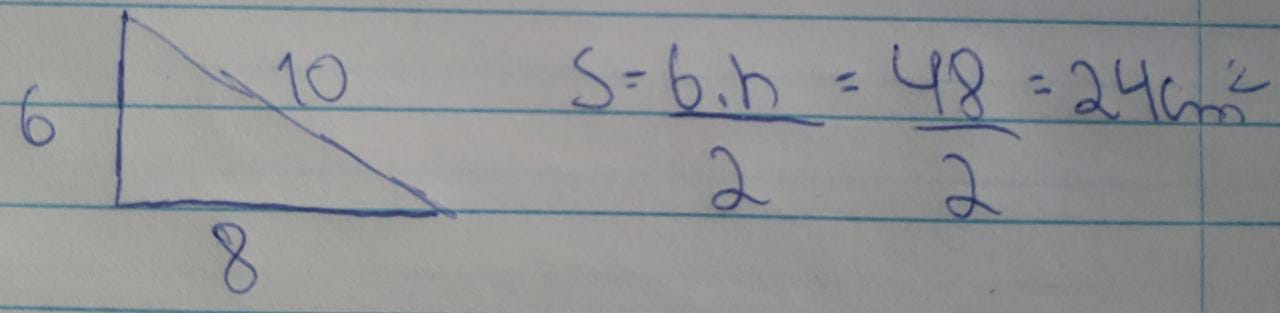 6
10
8
S = b.h/2 = 48/2 = 24cm²